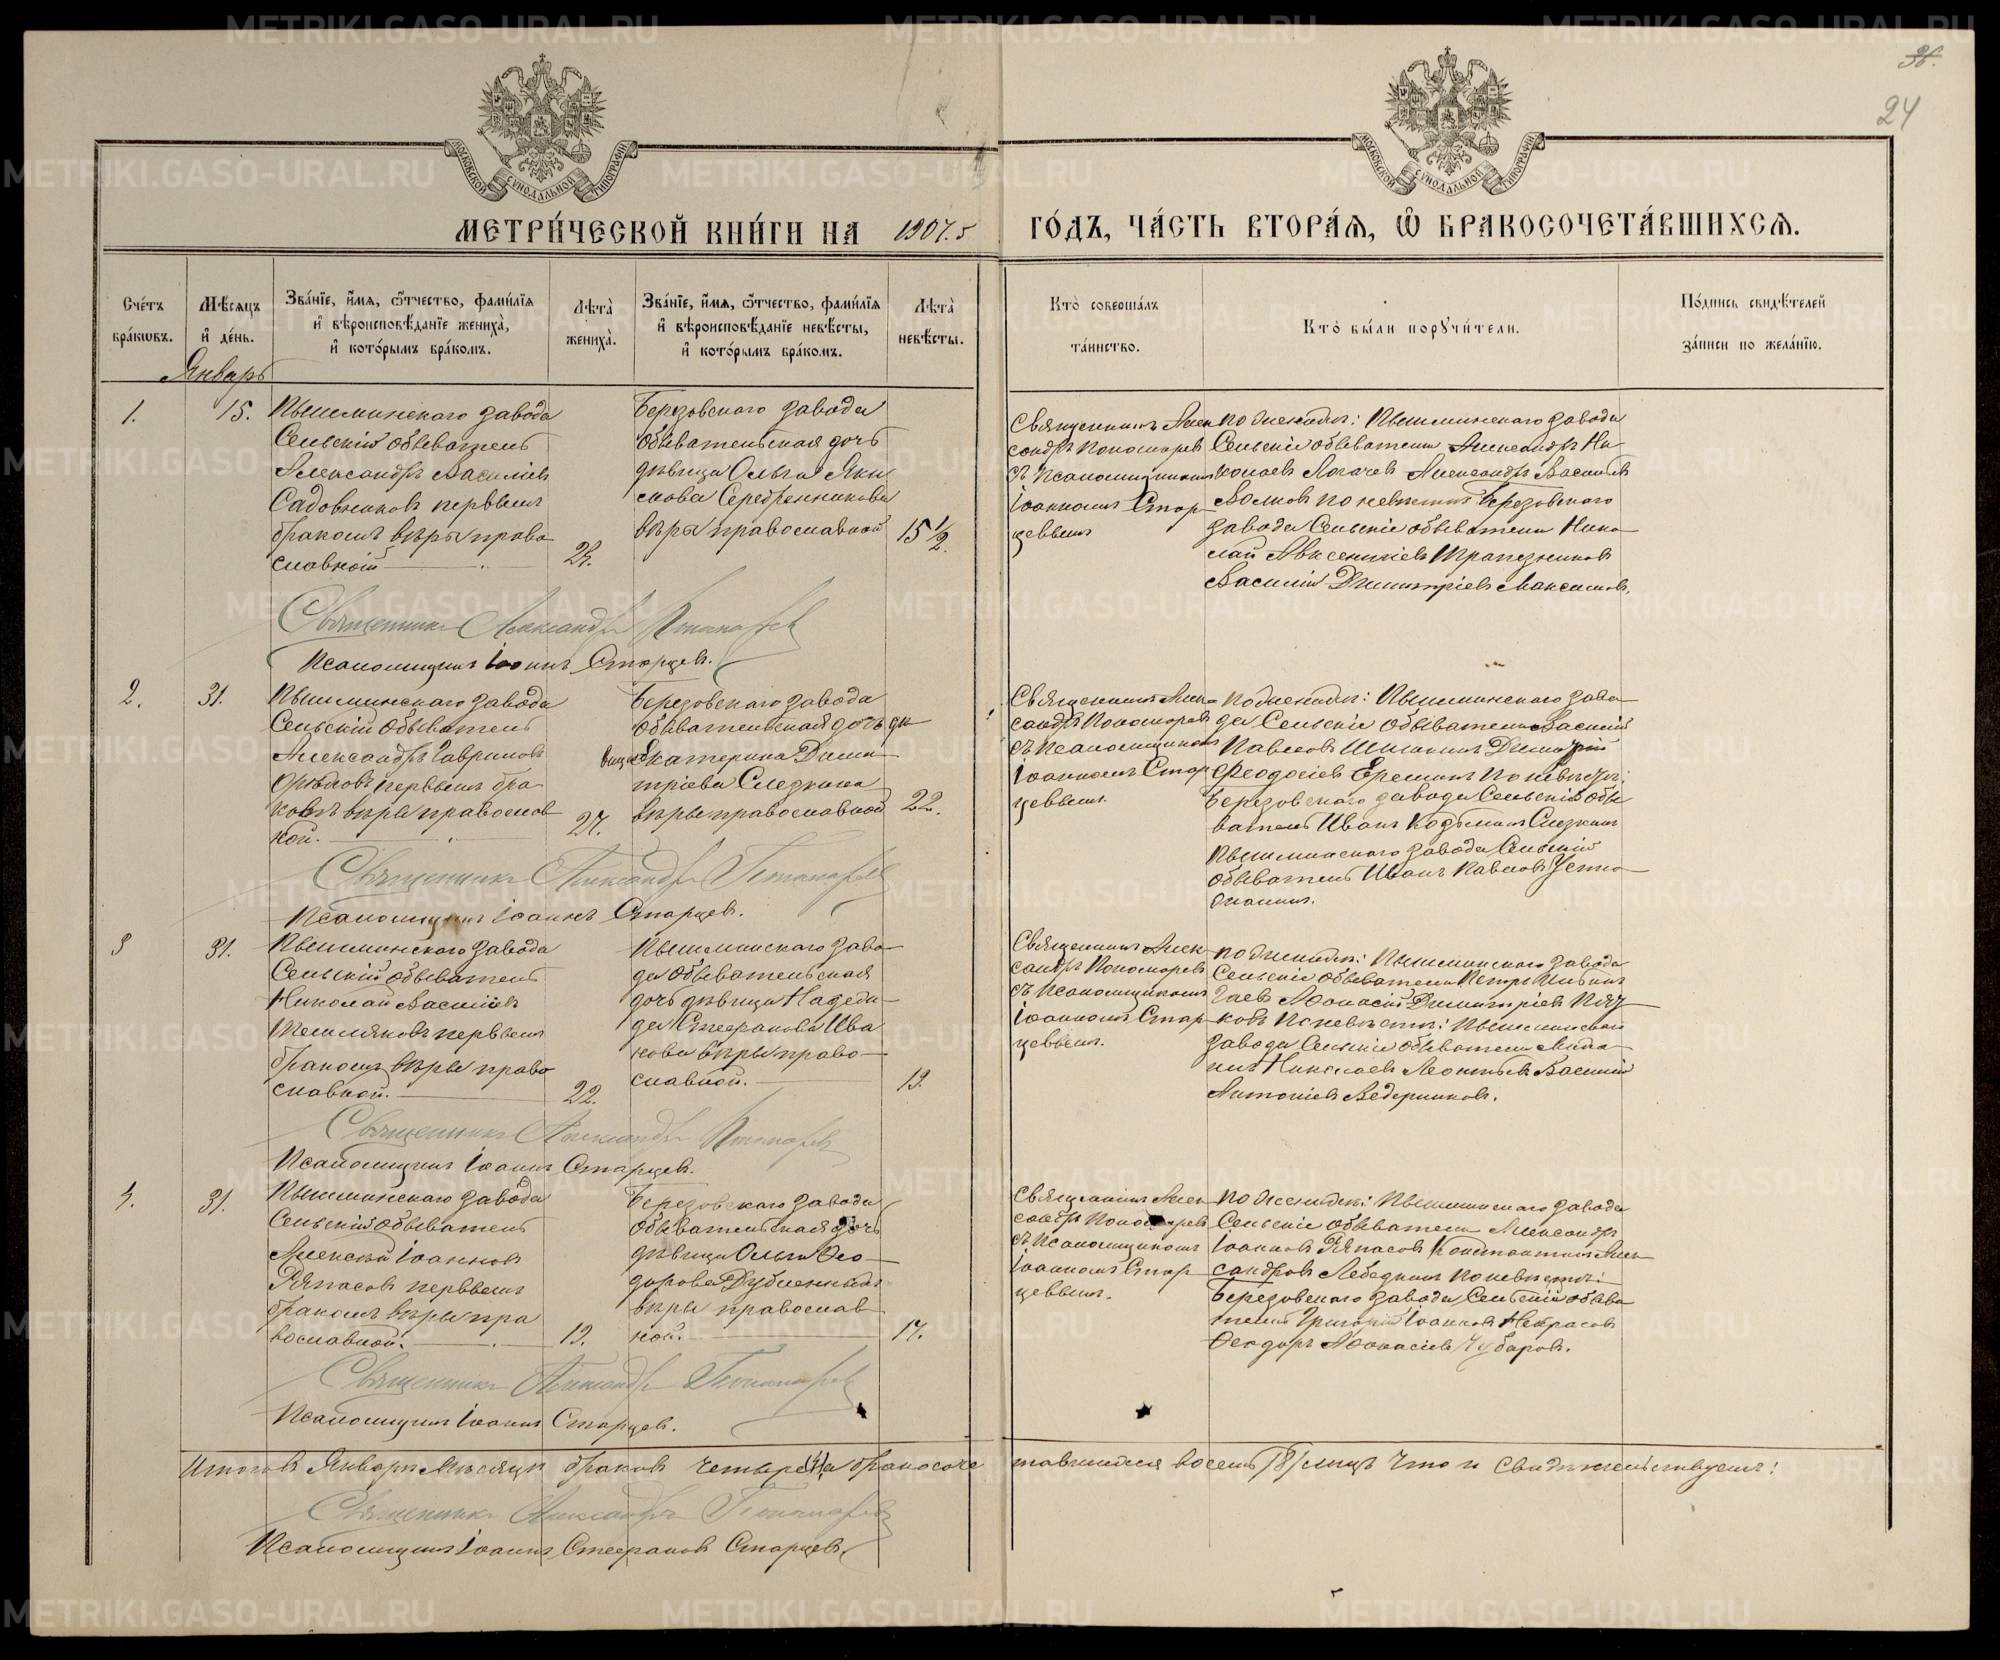 36.
24
МОСКОВСКОЙ СУНОДАЛЬНОЙ ТИПОГРАФІИ
МОСКОВСКОЙ СУНОДАЛЬНОЙ ТИПОГРАФІИ
МЕТРИ́ЧЕСКОЙ КНИ́ГИ НА 1907.
ГО́ДЪ, ЧА́СТЬ ВТОРА́Я, Ѽ БРАКОСОЧЕТА́ВШИХСЯ.
Сче́тъ
бра́кѡвъ.
Мѣ́сяцъ
и҆ де́нь.
Зва́нїе, и҆́мя, ѻ҆́тчество, фами́лїя
и҆ вѣроисповѣ́данїе жениха̀,
и҆ кото́рымъ бра́комъ.
Лѣта̀
жениха̀.
Зва́нїе, и҆́мя, ѻ҆́тчество, фами́лїя
и҆ вѣроисповѣ́данїе невѣ́сты,
и҆ кото́рымъ бра́комъ.
Лѣта̀
невѣ́сты.
Кто̀ совершáлъ
та́инство.
Кто̀ бы́ли поручи́тели.
По́дпись свидѣ́телей
за́писи по жела́нїю.
Январь
1.
15.
Пышминскаго завода
Сельскій обыватель
Александръ Васильевъ
Садовниковъ первымъ
бракомъ вѣры право
славной
24.
Березовскаго завода
обывательская дочь
дѣвица Ольга Яки
мова Серебренникова
вѣры православной
15 1/2.
Священникъ Алек
сандръ Пономаревъ
съ псаломщикомъ
Іоанномъ Стар
цевымъ
По женихѣ: Пышминскаго завода
Сельскіе обыватели Александръ Ни
колаевъ Логачевъ Александръ Васильевъ
Волковъ по невѣстѣ Березовскаго
завода Сельскіе обыватели Нико
лай Авксентіевъ Трапезниковъ
Василій Димитріевъ Максимовъ.
Священникъ Александръ Пономаревъ
Псаломщикъ Іоаннъ Старцевъ.
2.
31.
Пышминскаго завода
Сельскій обыватель
Александръ Гавриловъ
первымъ бра
комъ вѣры православ
ной.
27.
Березовскаго завода
обывательская дочь дѣ
вица Екатерина Дими
тріева Слезкина
вѣры православной
22.
Священникъ Алек
сандръ Пономаревъ
съ псаломщикомъ
Іоанномъ Стар
цевымъ.
По женихѣ: Пышминскаго заво
да Сельскіе обыватели Василій
Павловъ Шишкинъ Димитрій
Феодосіевъ Ереминъ по невѣстѣ:
Березовскаго завода Сельскій обы
ватель Иванъ Козьминъ Слезкинъ
Пышминскаго завода Сельскій
обыватель Иванъ Павловъ
Священникъ Александръ Пономаревъ
Псаломщикъ Іоаннъ Старцевъ.
3
31.
Пышминскаго завода
Сельскій обыватель
Николай Васильевъ
Тешляковъ первымъ
бракомъ вѣры право
славной.
22.
Пышминскаго заво
да обывательская
дочь дѣвица Надеж
да Стефанова Ива
нова вѣры право
славной.
19.
Священникъ Алек
сандръ Пономаревъ
съ псаломщикомъ
Іоанномъ Стар
цевымъ.
По женихѣ: Пышминскаго завода
Сельскіе обыватели Петръ
Аѳанасій Димитріевъ
по невѣстѣ: Пышминскаго
завода Сельскіе обыватели Миха
илъ Николаевъ Леонтьевъ Василій
Антоніевъ Ведерниковъ.
Священникъ Александръ Пономаревъ
Псаломщикъ Іоаннъ Старцевъ.
4.
31.
Пышминскаго завода
Сельскій обыватель
Алексѣй Іоанновъ
Рѣпасовъ первымъ
бракомъ вѣры пра
вославной.
19.
Березовскаго завода
обывательская дочь
дѣвица Ольга Ѳео
дорова
вѣры православ
ной.
17.
Священникъ Алек
сандръ Пономаревъ
съ псаломщикомъ
Іоанномъ Стар
цевымъ.
По женихѣ: Пышминскаго завода
Сельскіе обыватели Александръ
Іоанновъ Рѣпасовъ Константинъ Алек
сандровъ Лебедкинъ по невѣстѣ:
Березовскаго завода Сельскій обыва
тель Григорій Іоанновъ Некрасовъ
Ѳеодоръ Аѳанасіевъ Чубаровъ.
Священникъ Александръ Пономаревъ
Псаломщикъ Іоаннъ Старцевъ.
Итого въ Январѣ мѣсяцѣ браковъ четыре /4/ а бракосоче
тавшихся восемь /8/ лицъ что и свидѣтельствуемъ:
Священникъ Александръ Пономаревъ
Псаломщикъ Іоаннъ Стефановъ Старцевъ.
METRIKI.GASO-URAL.RU